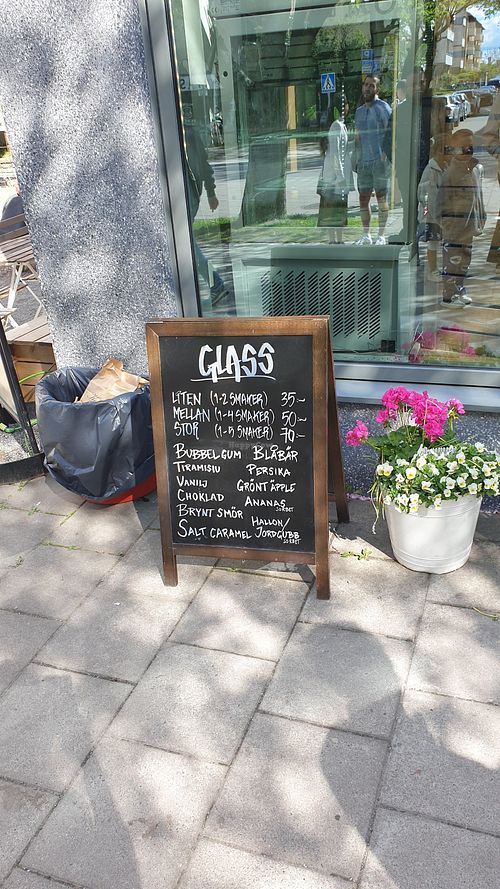 GLASS
LITEN (1-2 SMAKER) 35:-
MELLAN (1-4 SMAKER) 50:-
STOR (1-5 SMAKER) 70:-
BUBBELGUM BLÅBÄR
TIRAMISU PERSIKA
VANILJ GRÖNT ÄPPLE
CHOKLAD ANANAS SORBET
BRYNT SMÖR HALLON/
SALT CARAMEL JORDGUBB SORBET